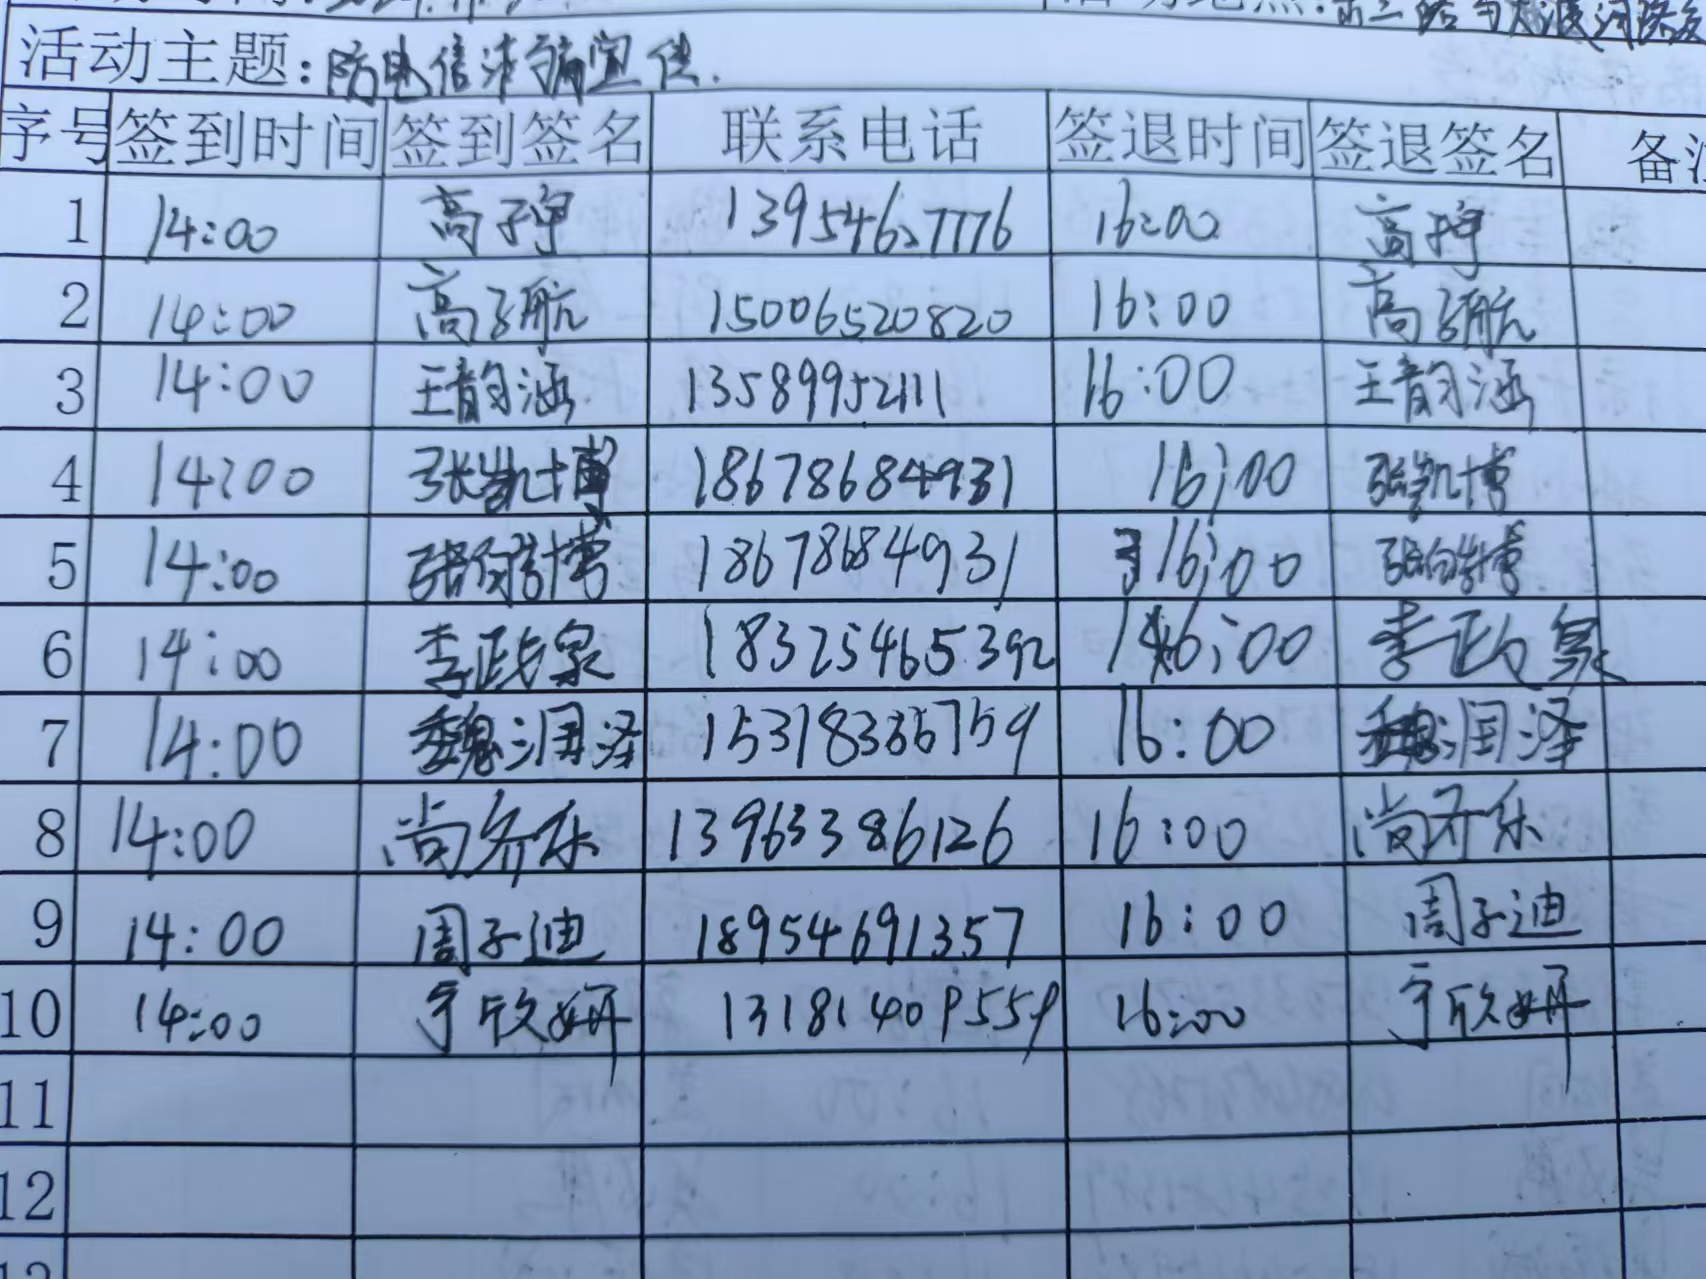 活动主题：防电信诈骗宣传.
序号 签到时间 签到签名 联系电话 签退时间 签退签名 备注
1 14:00 高子宁 16:00
2 14:00 高子航 15006520820 16:00 高子航
3 14:00 王韵涵 13589952111 16:00 王韵涵
4 14:00 张凯博 18678684931 16:00 张凯博
5 14:00 18678684931 16:00
6 14:00 李政泉 18325465392 16:00 李政泉
7 14:00 魏润泽 16:00 魏润泽
8 14:00 尚齐乐 13963386126 16:00 尚齐乐
9 14:00 周子迪 18954691357 16:00 周子迪
10 14:00 欣妍 13181409559 16:00 欣妍
11
12